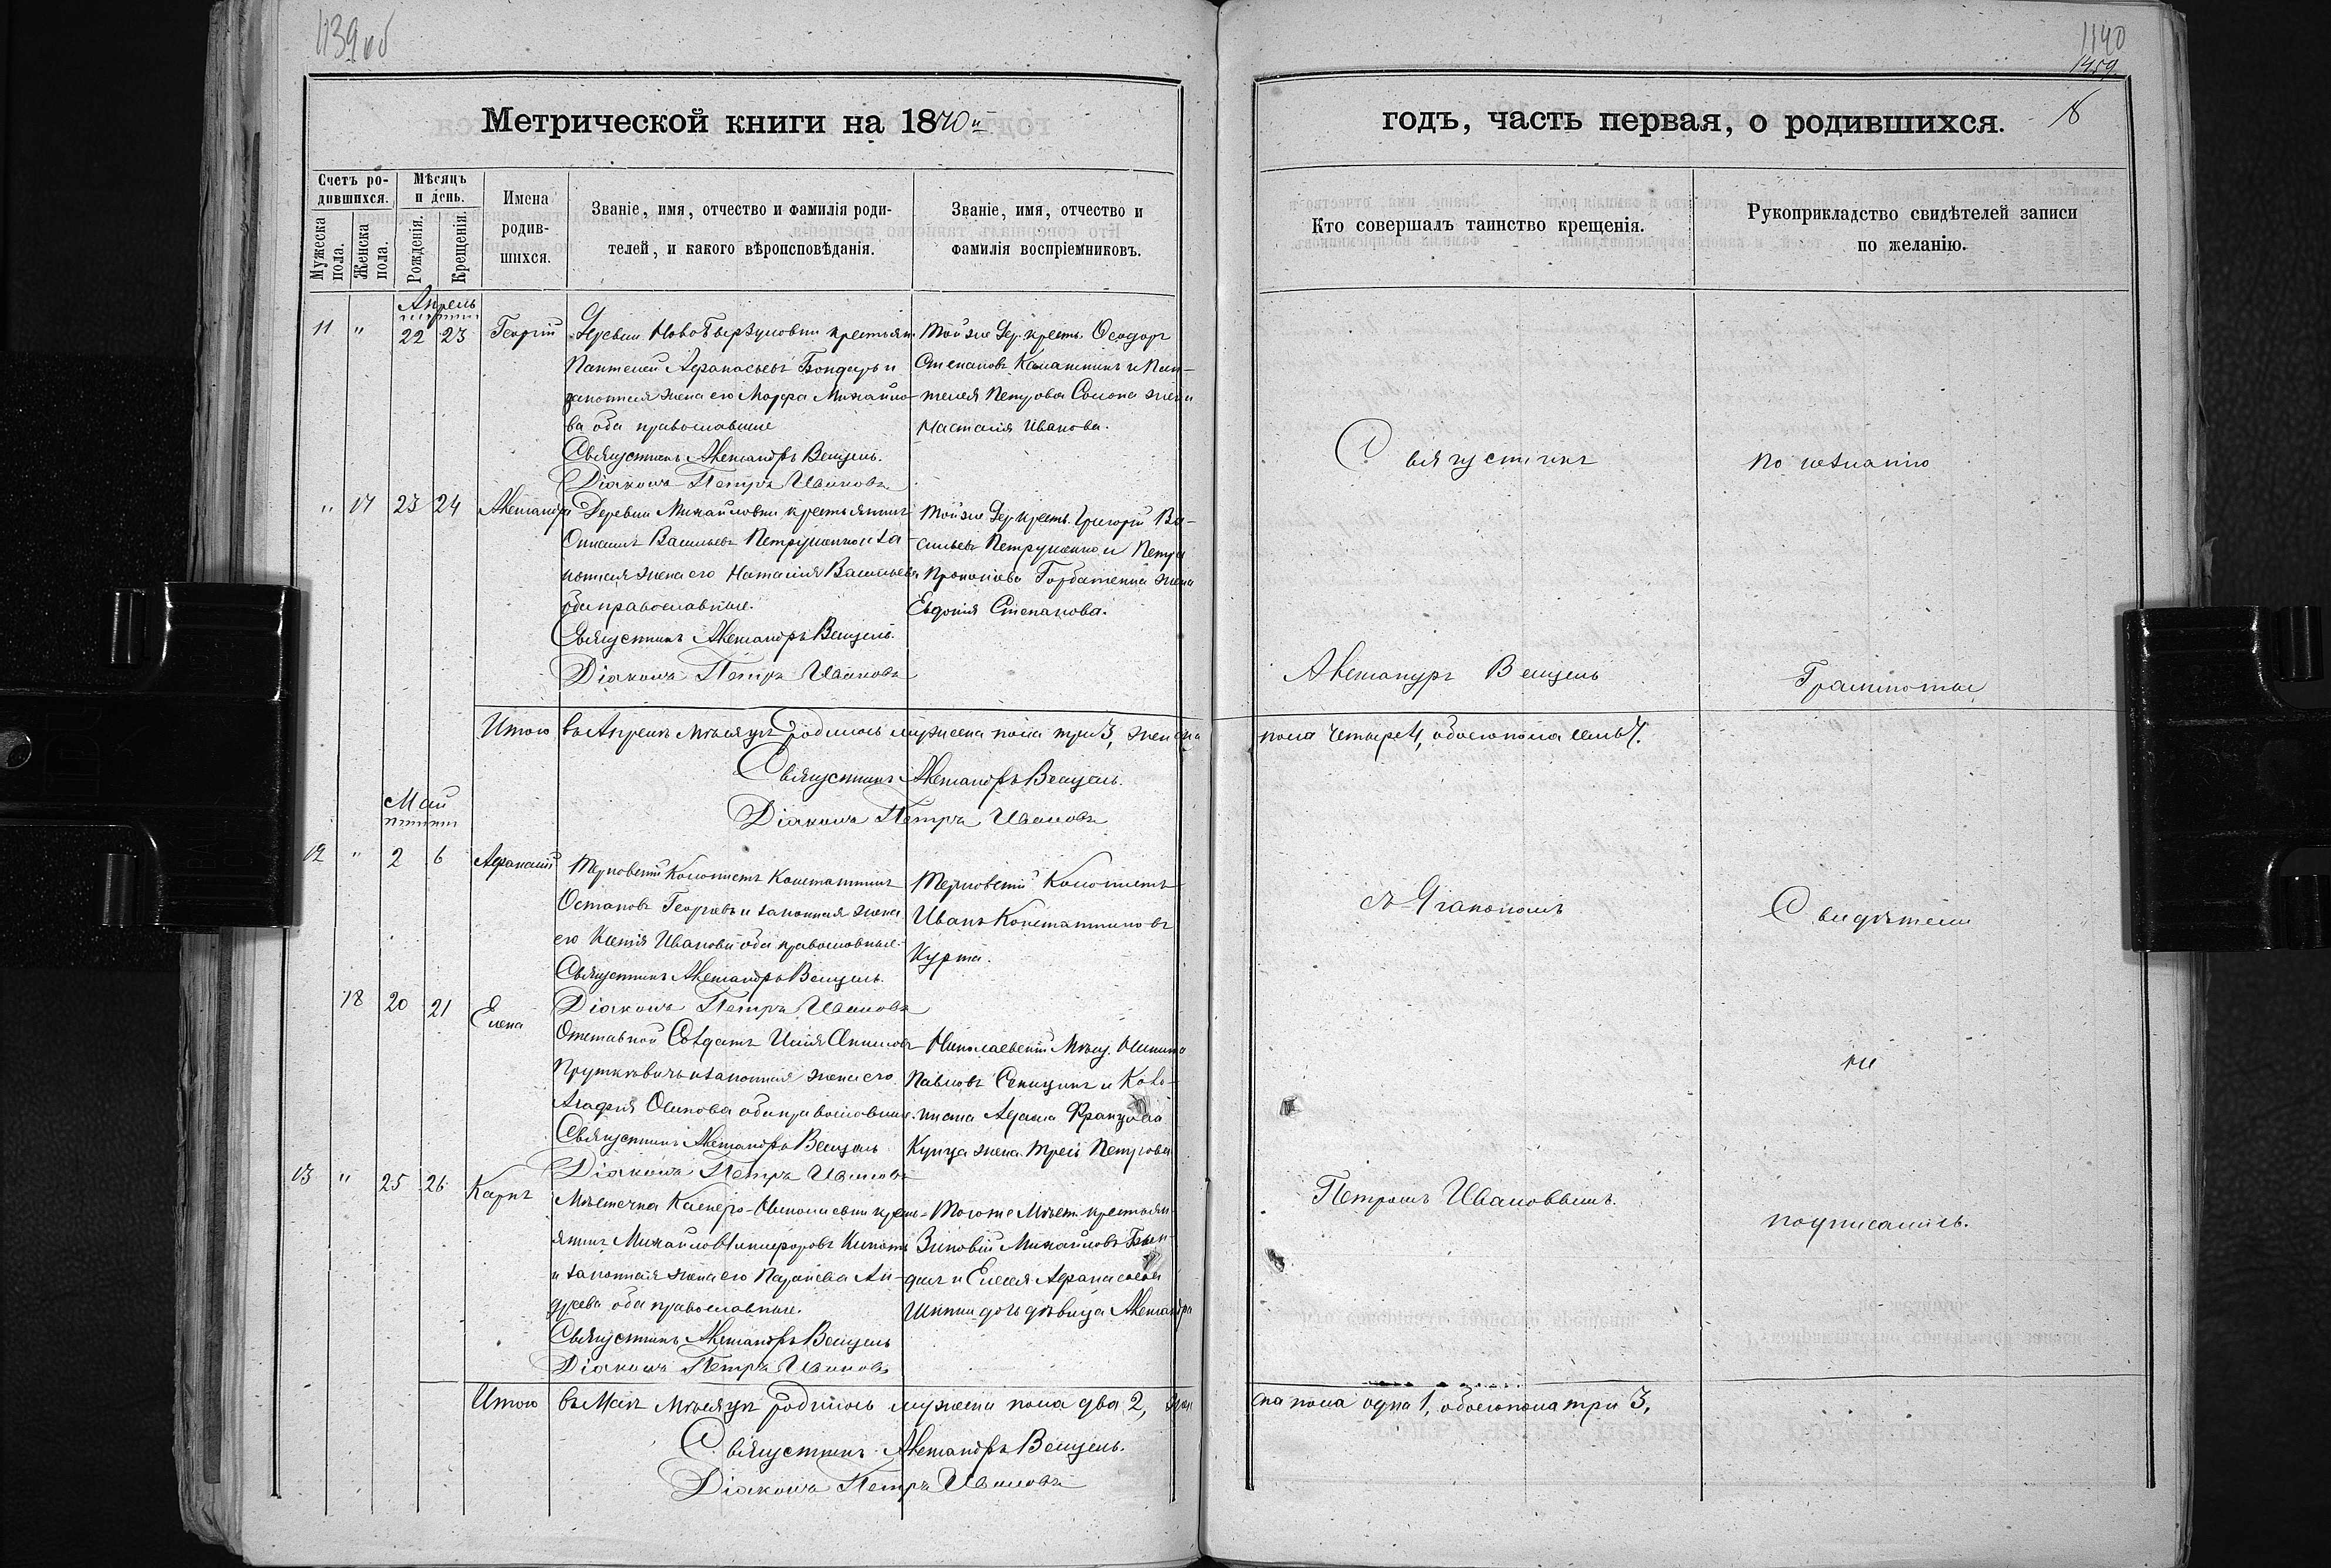 1139 об
1140
1459
Метрической книги на 1870й
годъ, часть первая, о родившихся.
8
Счетъ ро-
дившихся.
Мужеска пола.
Женска пола.
Мѣсяцъ и день.
Рожденія.
Крещенія.
Имена родив-
шихся.
Званіе, имя, отчество и фамилія роди-
телей, и какого вѣроисповѣданія.
Званіе, имя, отчество и
фамилія воспріемниковъ.
Кто совершалъ таинство крещенія.
Рукоприкладство свидѣтелей записи
по желанію.
Апрель
11 " 22 23 Георгій
Деревни крестьян.
Пантелей Афанасьевъ Бондарь и
законная жена его Марфа Михайло-
ва оба православные
Священникъ Александръ Венцель.
Діаконъ Петръ Ивановъ
Той же Дер. кресть. Ѳеодоръ
Степановъ Калашникъ и Пан-
телея Петрова жена
Наталія Иванова.
" 17 23 24 Александра
Деревни Михайловки крестьянинъ
Васильевъ Петрушенко и за-
конная жена его Наталія Васильева
оба православные.
Священникъ Александръ Венцель.
Діаконъ Петръ Ивановъ
Той же Дер. кресть. Григорій Ва-
сильевъ Петрушенко и Петра
Прокопіева Горбатенка жена
Евдокія Степанова.
Итого въ Апрелѣ мѣсяцѣ родилось мужеска пола три 3, женска
пола четыре 4, обоего пола семь 7.
Священникъ Александръ Венцель.
Діаконъ Петръ Ивановъ
Май
12 " 2 6 Афанасій
Терновскій Колонистъ Константинъ
Остановъ Георгіевъ и законная жена
его Ксенія Иванова оба православные.
Священникъ Александръ Венцель.
Діаконъ Петръ Ивановъ
Терновскій Колонистъ
Иванъ Константиновъ
Курта.
18 20 21 Елена
Отставной Солдатъ Илія
и законная жена его
Агафія Осипова оба православные.
Священникъ Александръ Венцель
Діаконъ Петръ Ивановъ
Николаевскій Мѣщ. Никита
Павловъ Синицинъ и Коло-
ниста Адама Францова
Купца жена Петрова
13 " 25 26 Карпъ
Мѣстечка Касперо-Николаевки кресть-
янинъ Михайло Никифоровъ
и законная жена его Параскева Ан-
дреева оба православные.
Священникъ Александръ Венцель
Діаконъ Петръ Ивановъ
Того же Мѣст. крестьян.
Зиновій Михайловъ
и Елисея Афанасьева
дочь дѣвица Александра
Итого въ Маѣ мѣсяцѣ родилось мужеска пола два 2, жен
ска пола одна 1, обоего пола три 3.
Священникъ Александръ Венцель.
Діаконъ Петръ Ивановъ
Священникъ
Александръ Венцель
съ Діакономъ
Петромъ Ивановымъ.
По незнанію
Грамоты
Свидѣтели
не
подписались.